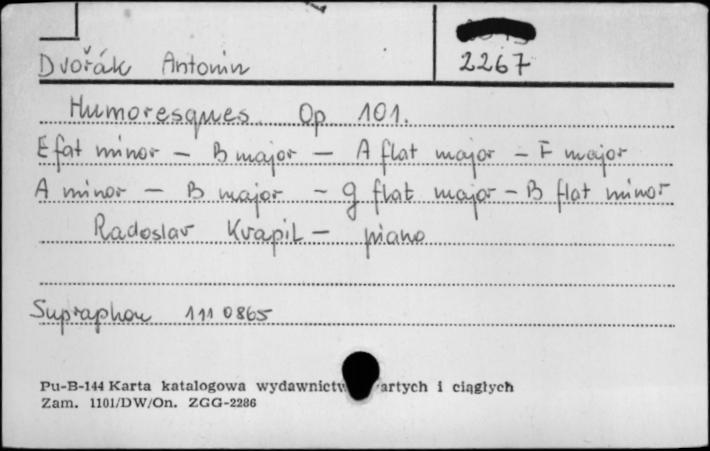 Dvořák Antonin
2267
Humoresques Op 101.
E fat minor – B major – A flat major – F major
A minor – B major – g flat major – B flat minor
Radoslav Kvapil – piano
Supraphon 111 0865
Pu-B-144 Karta katalogowa wydawnictw artych i ciągłych
Zam. 1101/DW/On. ZGG-2286